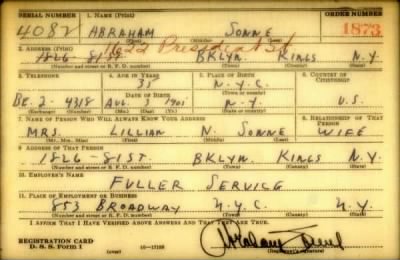 SERIAL NUMBER 1. NAME (Print) ORDER NUMBER
4082 ABRAHAM SONNE 1873
1622 President St
2. ADDRESS (Print)
1826-81ST. BKLYN. KINGS N.Y.
(Number and street or R. F. D. number) (Town) (County) (State)
3. TELEPHONE 4. AGE IN YEARS 5. PLACE OF BIRTH 6. COUNTRY OF CITIZENSHIP
35 N.Y.C.
DATE OF BIRTH
BE. 2-4318 AUG. 3 1905 N.Y. U.S.
(Exchange) (Number) (Mo.) (Day) (Yr.) (State or country)
7. NAME OF PERSON WHO WILL ALWAYS KNOW YOUR ADDRESS 8. RELATIONSHIP OF THAT PERSON
MRS. LILLIAN N. SONNE WIFE
(Mr., Mrs., Miss) (First) (Middle) (Last)
9. ADDRESS OF THAT PERSON
1826-81ST. BKLYN. KINGS N.Y.
(Number and street or R. F. D. number) (Town) (County) (State)
10. EMPLOYER'S NAME
FULLER SERVICE
11. PLACE OF EMPLOYMENT OR BUSINESS
853 BROADWAY N.Y.C. N.Y.
(Number and street or R. F. D. number) (Town) (County) (State)
I AFFIRM THAT I HAVE VERIFIED ABOVE ANSWERS AND THAT THEY ARE TRUE.
REGISTRATION CARD
D. S. S. Form 1 (over) 16-17105 Abraham Sonne
(Registrant's signature)